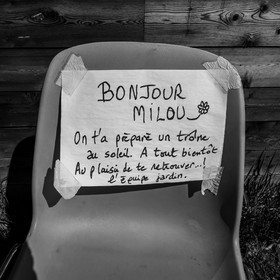 BONJOUR
MILOU
On t'a préparé un trône
au soleil. A tout bientôt
Au plaisir de te retrouver...!
l'Equipe jardin.